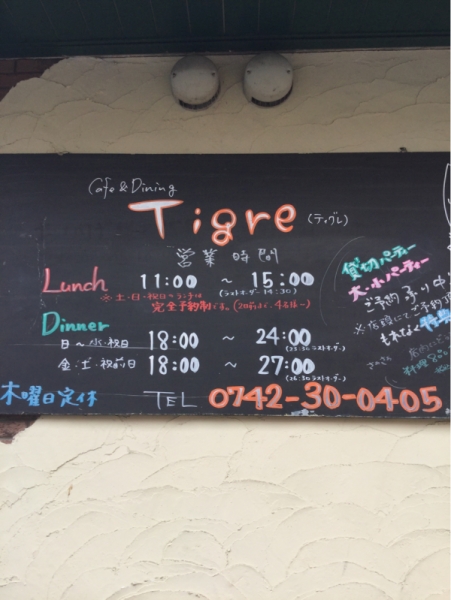 Cafe & Dining
Tigre (ティグレ)
営業時間
Lunch 11:00 ~ 15:00
(ラストオーダー 14:30)
※土・日・祝日のランチは
完全予約制です。
Dinner
日~水・祝日 18:00 ~ 24:00
(23:30 ラストオーダー)
金・土・祝前日 18:00 ~ 27:00
(26:30 ラストオーダー)
木曜日定休 TEL 0742-30-0405
貸切パーティー
大・小パーティー
ご予約承り中
※店頭にてご予約
もれなく特典